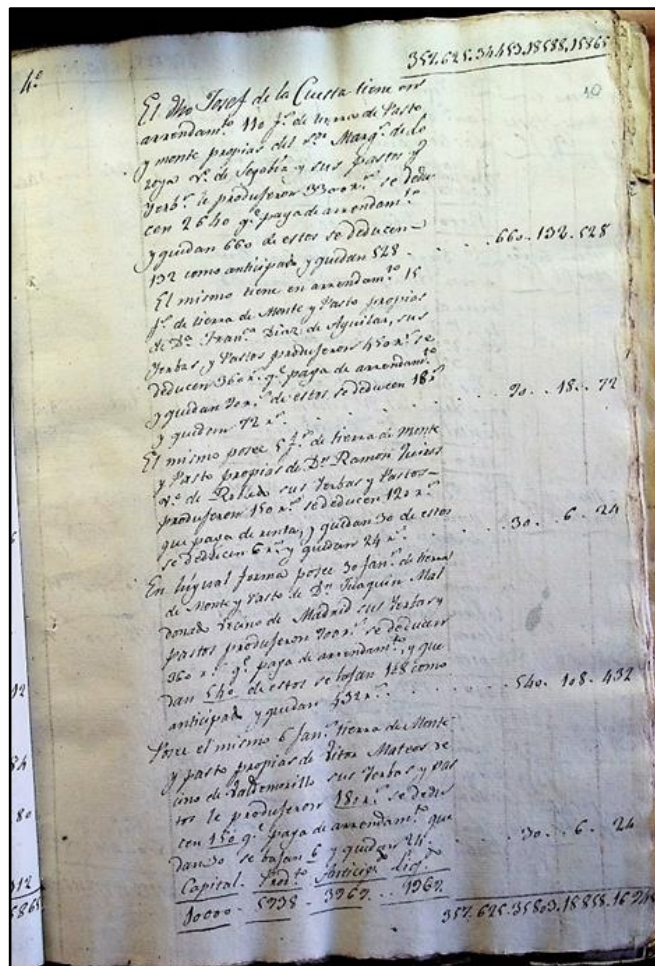 4º
357.625.34453.18588.15865
10
El dho Josef de la Cuesta tiene en
arrendamto 110 fs de tierra de Pasto
y monte propias del Sor Marqs de Lo
zoya vº de Segobia y sus pastos y
Yerbs le produjeron 3300 rs se dedu
cen 2640 qe paga de arrendamto
y quedan 660 de estos se deducen
132 como anticipado y quedan 528
660. 132. 528
El mismo tiene en arrendamto 15
fs de tierra de Monte y Pasto propias
de Da Franca Diaz de Aguilar, sus
Yerbas y Pastos produjeron 450 rs se
deducen 360 rs qe paga de arrendamto
y quedan 90 rs de estos se deducen 18 rs
y quedan 72 rs
90. 18. 72
El mismo posee 5 fs de tierra de Monte
y Pasto propias de Dn Ramon
vº de Robledo sus Yerbas y Pastos
produjeron 150 rs se deducen 120 rs
que paga de renta, y quedan 30 de estos
se deducen 6 rs y quedan 24 rs
30. 6. 24
En higual forma posee 30 fans de tierra
de Monte y Pasto de Dn Juaquin Mal
donado Vecino de Madrid sus Yerbas y
Pastos produjeron 900 rs se deducen
360 rs qe paga de arrendamto, y que
dan 540 de estos se bajan 108 como
anticipado y quedan 432 rs
540. 108. 432
Posee el mismo 6 fans tierra de Monte
y pasto propias de Vitor Mateos ve
cino de Valdemorillo sus Yerbas y Pas
tos le produjeron 180 rs se dedu
cen 150 qe paga de arrendamto que
dan 30 se bajan 6 y quedan 24
30. 6. 24
Capital. Prodto Anticipo Liqdo
10000. 5938. 3969. 1969.
357.625.35803.18858.16945
12
84
80
312
5865